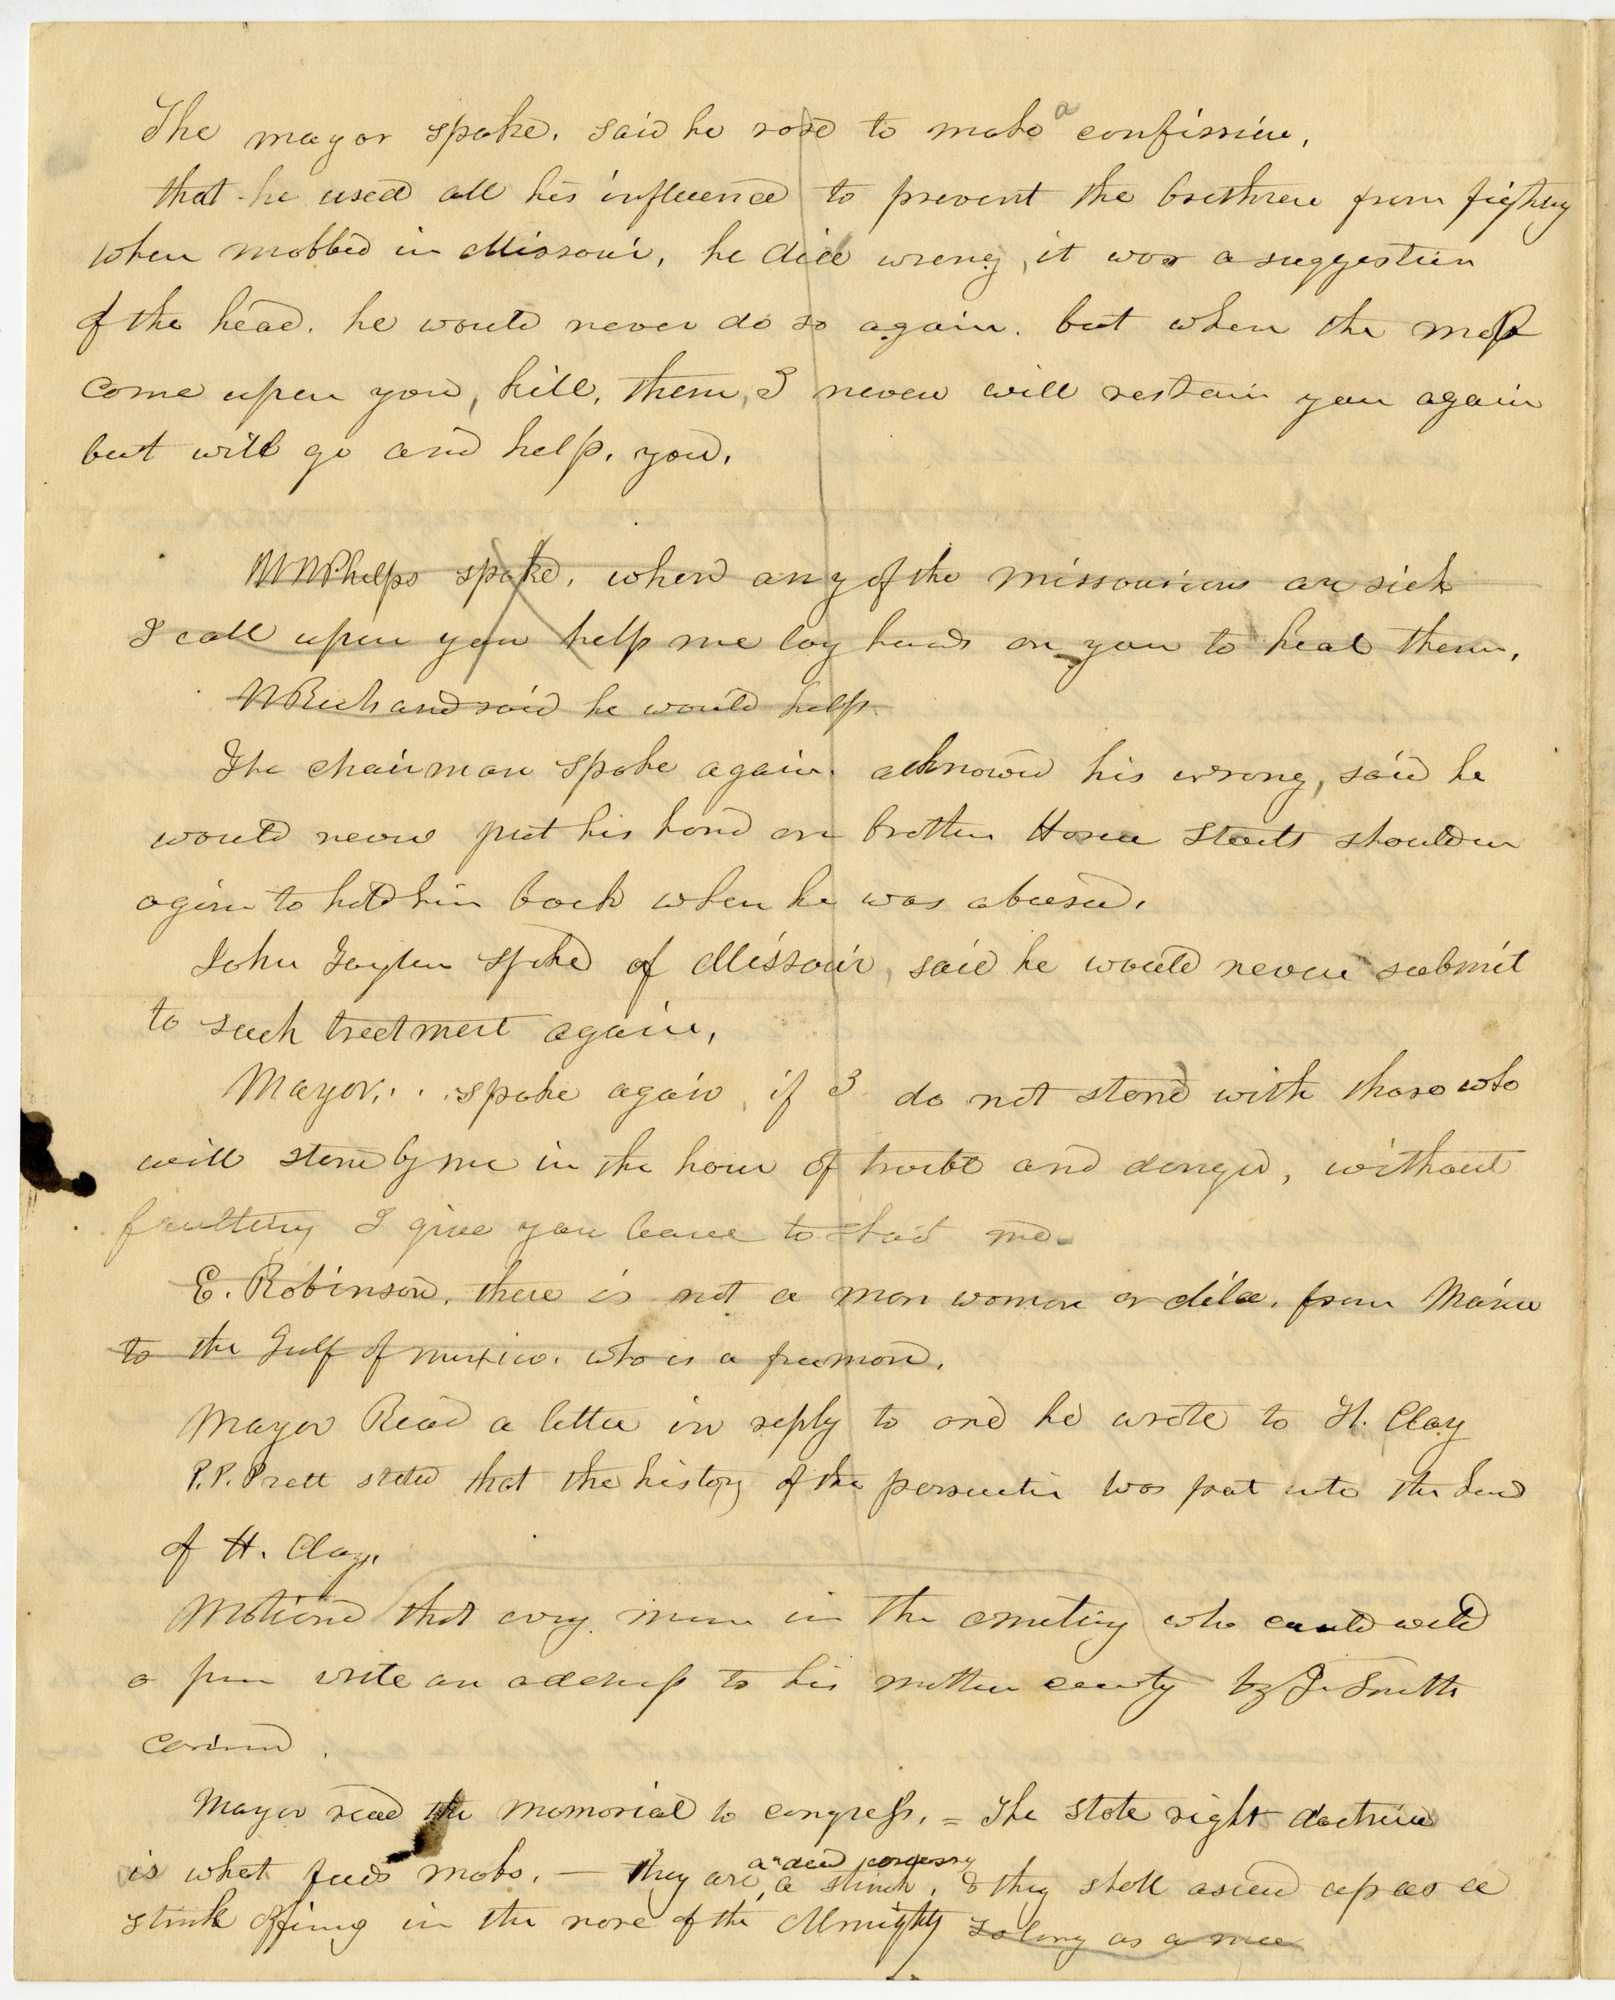 The mayor spoke, said he rose to make a confission,
that he used all his influence to prevent the brethren from fighting
when mobbed in Missouri, he did wrong, it was a suggestion
of the head. he would never do so again. but when the mob
come upon you, kill, them, I never will restrain you again
but will go and help, you,
WW Phelps spoke, when any of the missourians are sick
I call upon you help me lay hands on you to heal them,
W Richards said he would help
The chairman spoke again. acknowd his wrong, said he
would never put his hand on brother Hosea Stouts shoulder
again to hold him back when he was abused,
John Taylor spoke of Missouri, said he would never submit
to such treetment again,
Mayor, . . spoke again, if I do not stand with those who
will stand by me in the hour of trouble and danger, without
faultring I give you leave to me
E. Robinson, there is not a man woman or from Maine
to the Gulf of mexico. who is a freeman,
Mayor Read a letter in reply to one he wrote to H. Clay
P.P. Pratt stated that the history of the persecution was put into the hand
of H. Clay,
Motiond that every man in the meeting who could weild
a pen write an address to his mother country by J. Smith
carried.
Mayor read the memorial to congress, = The state right doctrine
is what feeds mobs, — they are a dead carcass
a stink, & they shall ascend up as a
stink offring in the nose of the Almighty so long as a